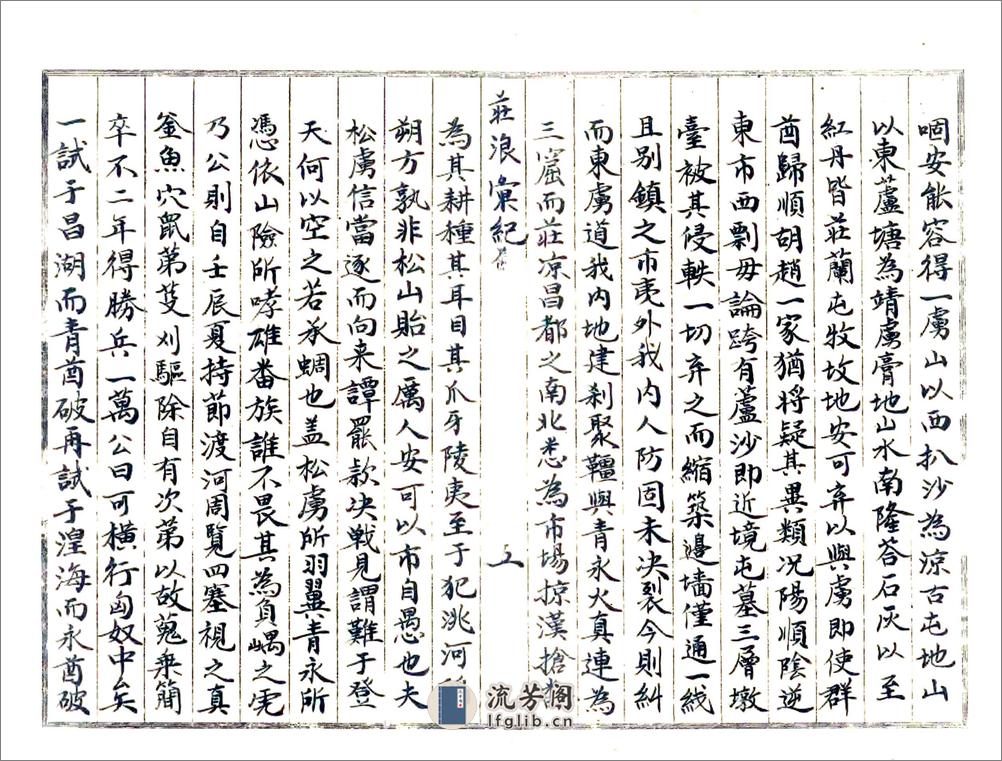 啯安能容得一虜山以西扒沙為涼古屯地山
以東蘆塘為靖虜膏地山水南隆荅石灰以至
紅丹皆莊蘭屯牧坟地安可弃以與虜即使群
酋歸順胡趙一家猶將疑其異類况陽順陰逆
東市西剽毋論跨有蘆沙即近境屯墓三層墩
臺被其侵軼一切弃之而縮築邉墻僅通一綫
且别鎮之市夷外我内人防固未决裂今則糾
而東虜道我内地建刹聚韁與青永火真連為
三窟而莊凉昌都之南北悉為市場掠漢搶
莊浪彙紀
五
為其耕種其耳目其爪牙陵夷至于犯洮河
朔方孰非松山貽之厲人安可以市自愚也夫
松虜信當逐而向来譚罷款决戦見謂難于登
天何以空之若承蜩也盖松虜所羽翼青永所
馮依山險所哮雄畨族誰不畏其為負嵎之虎
乃公則自壬辰夏持節渡河周覧四塞視之真
釜魚穴鼠第芟刈驅除自有次第以故蒐乗簡
卒不二年得勝兵一萬公曰可横行匈奴中矣
一試于昌湖而青酋破再試于湟海而永酋破
流芳阁
lfglib.cn